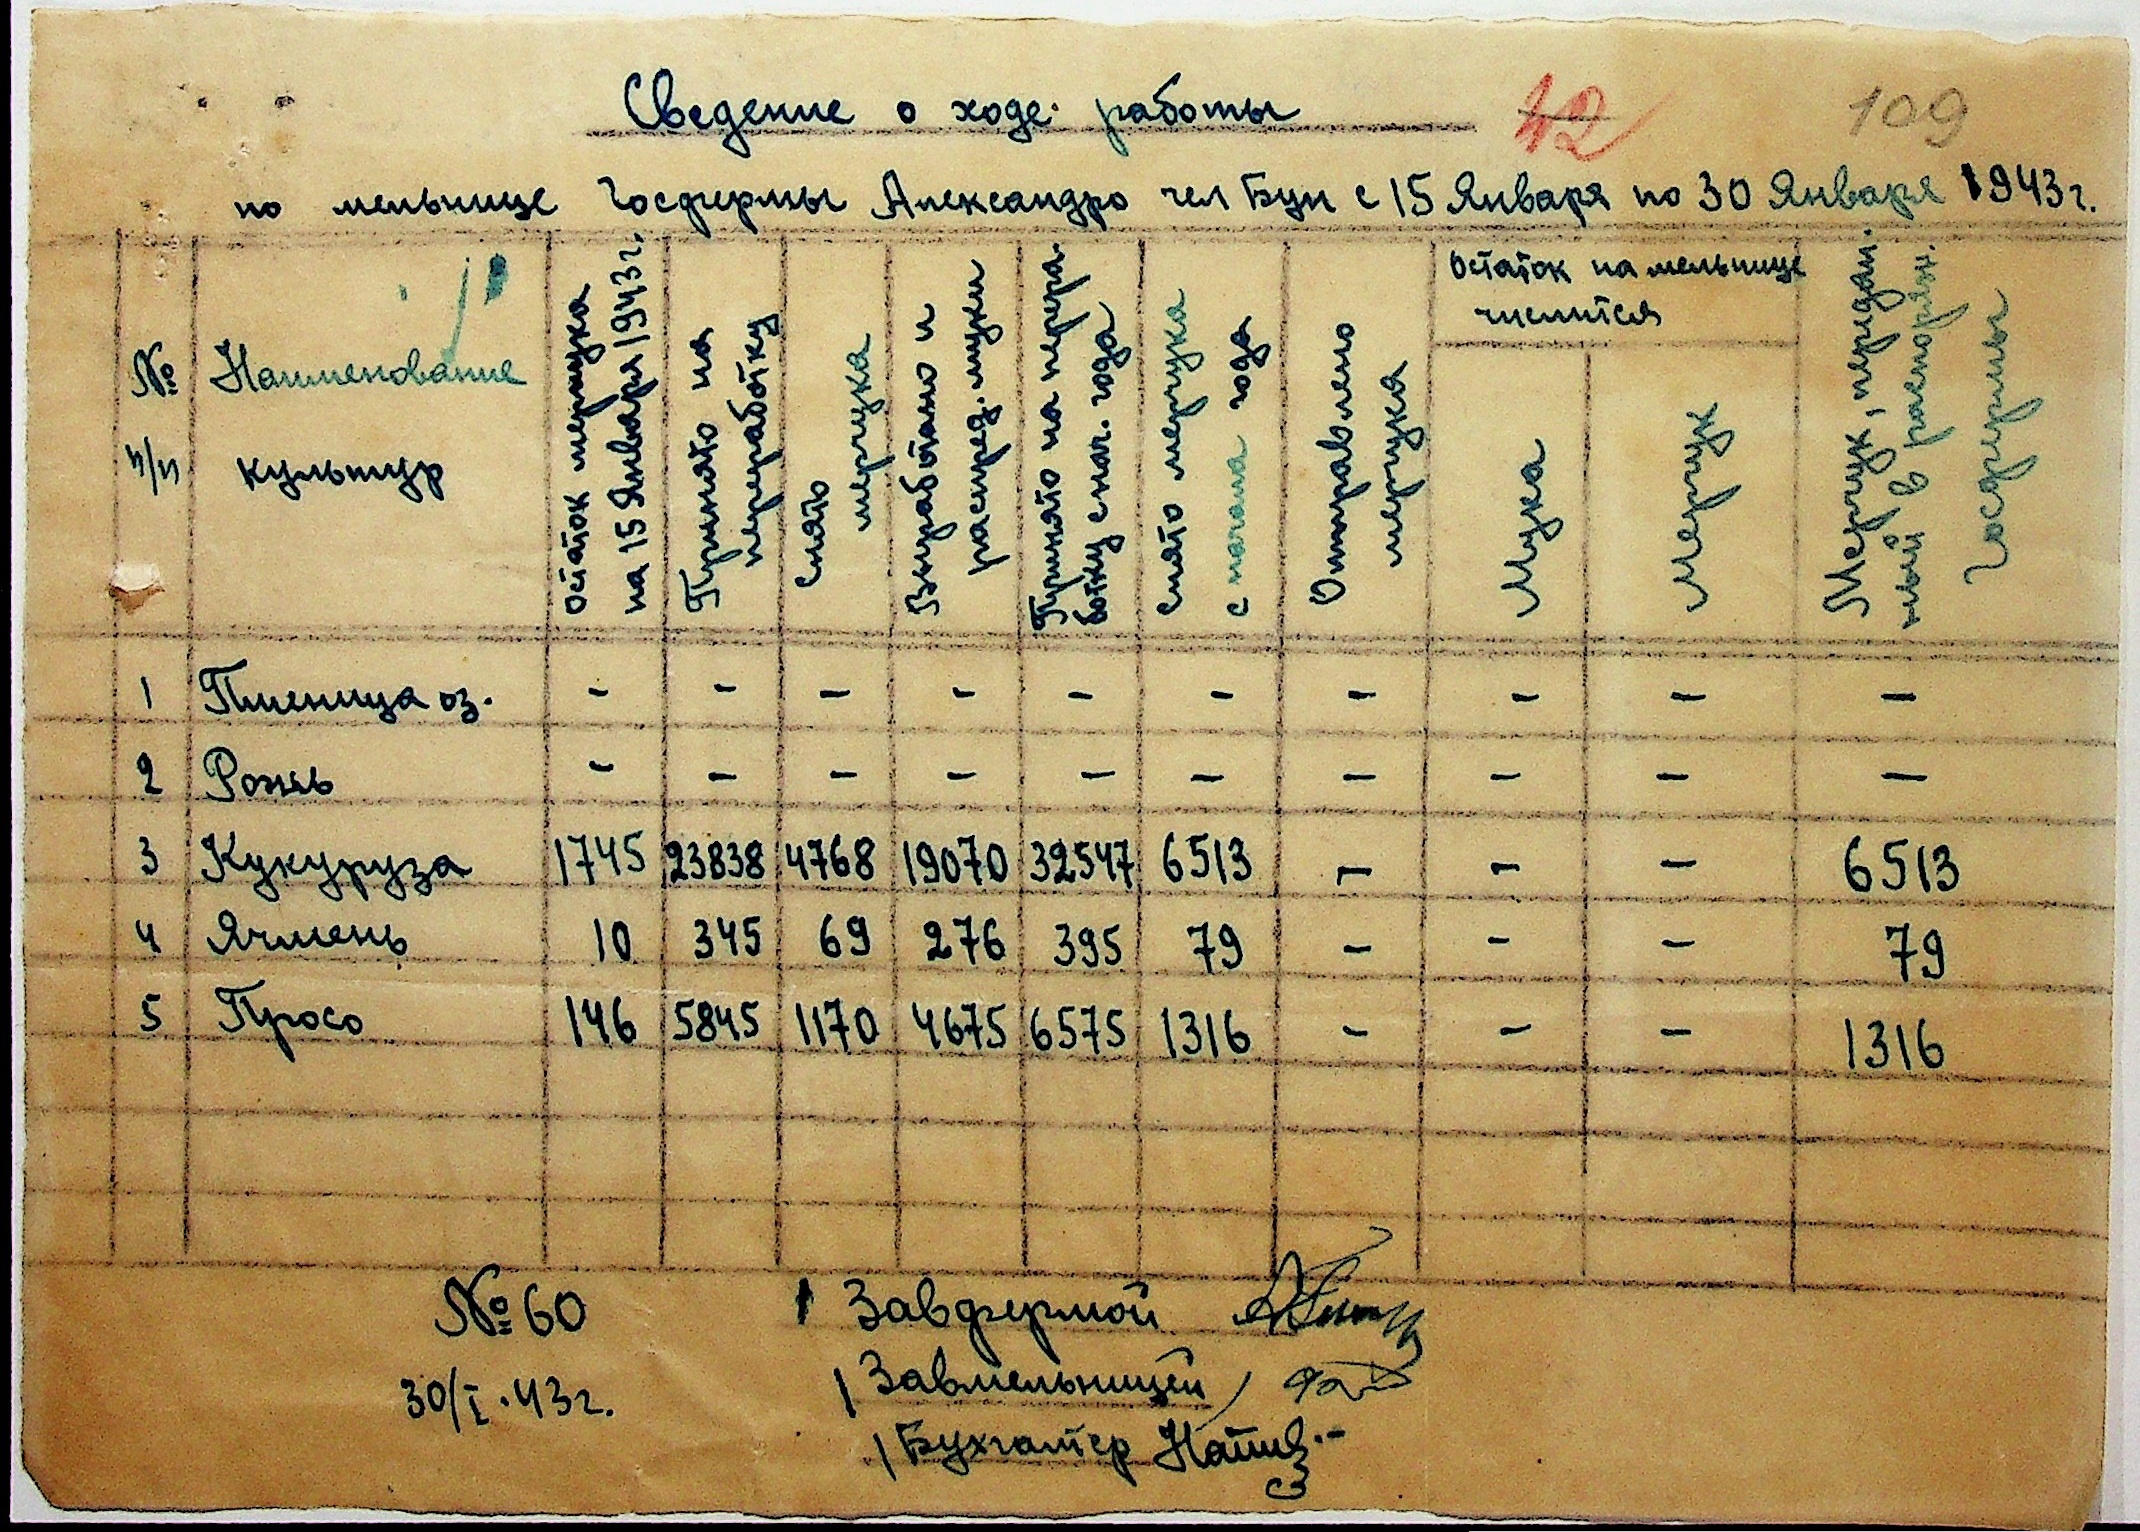 Сведение о ходе работы
42
109
по мельнице Госфермы Александро чел Бун с 15 Января по 30 Января 1943г.
№ п/п
Наименование культур
Остаток мерчука на 15 Января 1943г.
Принято на переработку
Снято мерчука
Выработано и распред. муки
Принято на перера-ботку с нач. года
Снято мерчука с начала года
Отправлено мерчука
Остаток на мельнице числится
Мука
Мерчук
Мерчук, передан-ный в распоряж. Госфермы
1 Пшеница оз. - - - - - - - - - -
2 Рожь - - - - - - - - - -
3 Кукуруза 1745 23838 4768 19070 32547 6513 - - - 6513
4 Ячмень 10 345 69 276 395 79 - - - 79
5 Просо 146 5845 1170 4675 6575 1316 - - - 1316
№ 60
30/I.43г.
Завфермой
Завмельницей
Бухгалтер